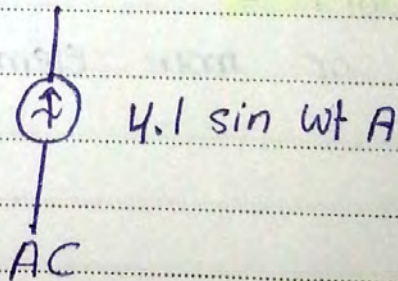 4.1 sin wt A
AC